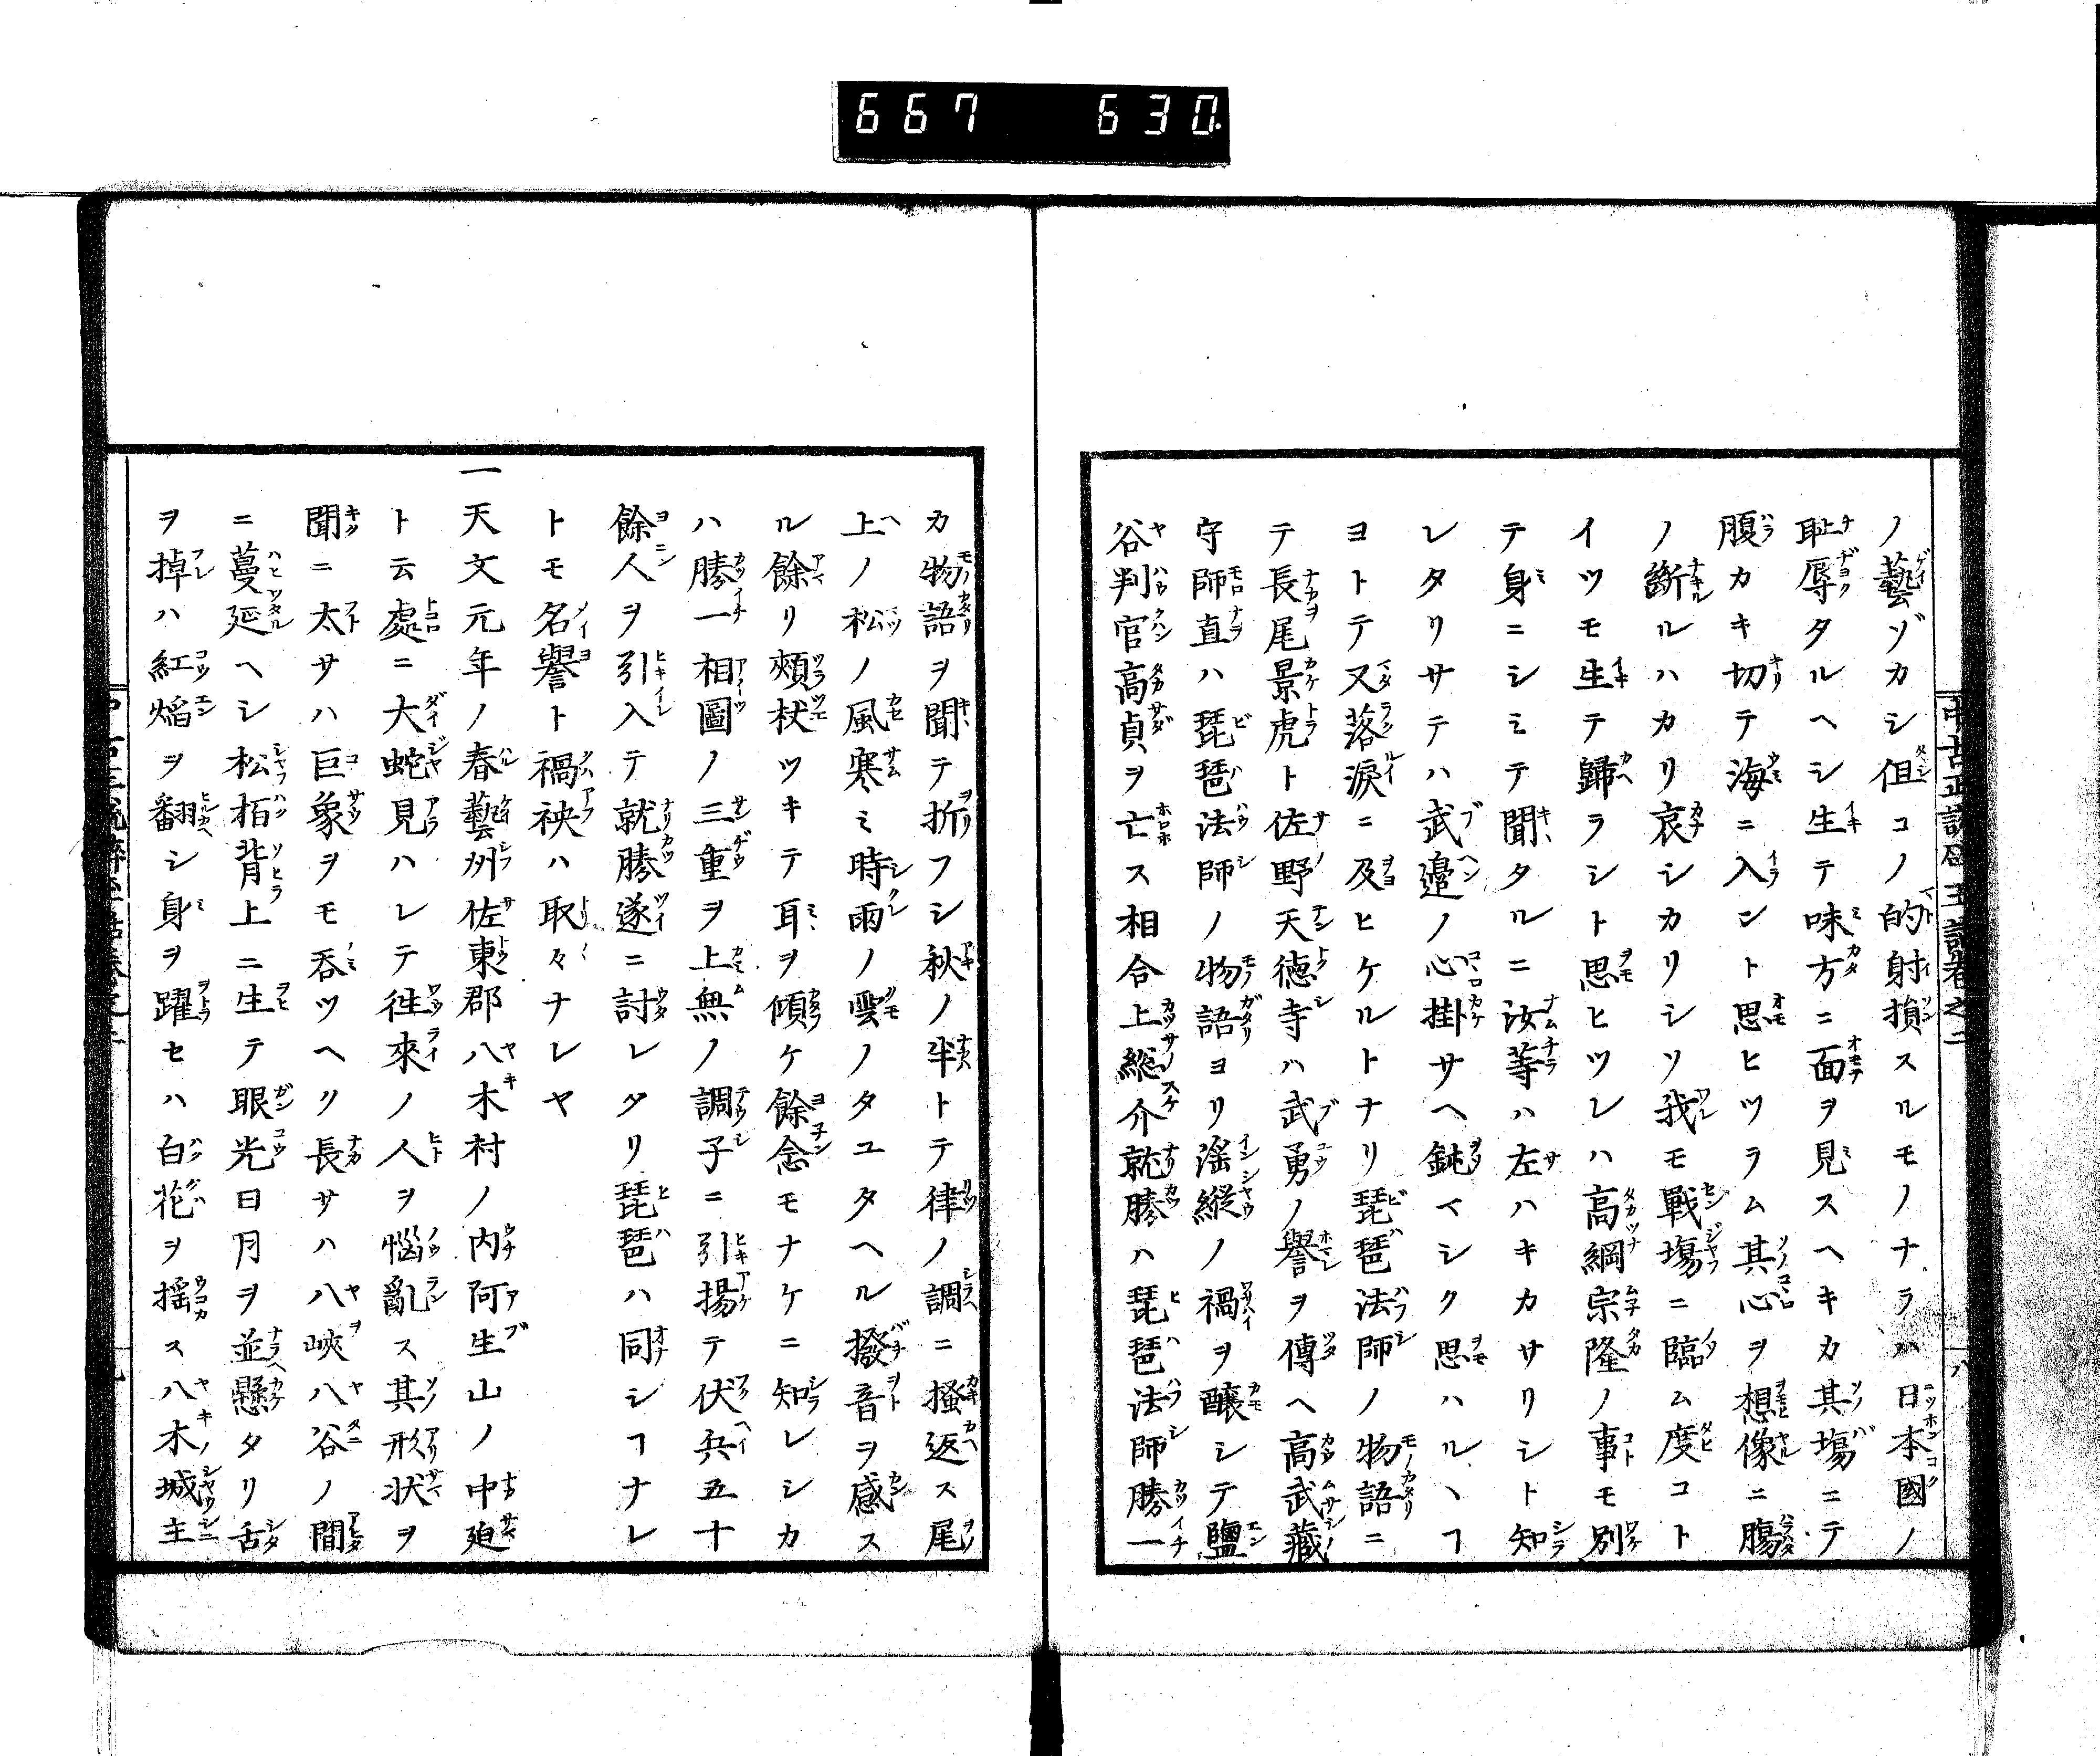 667 630
ノ藝ゾカシ但コノ的射損スルモノナラハ日本國ノ
耻辱タルヘシ生テ味方ニ面ヲ見スヘキカ其塲ニテ
腹カキ切テ海ニ入ント思ヒツラム其心ヲ想像ニ膓
ノ斷ルハカリ哀シカリシソ我モ戰塲ニ臨ム度コト
イツモ生テ歸ラシト思ヒツレハ高綱宗隆ノ事モ別
テ身ニシミテ聞タルニ汝等ハ左ハキカサリシト知
レタリサテハ武邉ノ心掛サヘ鈍マシク思ハルヽヿ
ヨトテ又落涙ニ及ヒケルトナリ琵琶法師ノ物語ニ
テ長尾景虎ト佐野天徳寺ハ武勇ノ譽ヲ傳ヘ高武藏
守師直ハ琵琶法師ノ物語ヨリ滛縱ノ禍ヲ醸シテ鹽
谷判官高貞ヲ亡ス相合上総介就勝ハ琵琶法師勝一
カ物語ヲ聞テ折フシ秋ノ半トテ律ノ調ニ搔返ス尾
上ノ松ノ風寒ミ時雨ノ雲ノタユタヘル撥音ヲ感ス
ル餘リ頰杖ツキテ耳ヲ傾ケ餘念モナケニ知レシカ
ハ勝一相圖ノ三重ヲ上無ノ調子ニ引揚テ伏兵五十
餘人ヲ引入テ就勝遂ニ討レタリ琵琶ハ同シヿナレ
トモ名譽ト禍殃ハ取々ナレヤ
一天文元年ノ春藝州佐東郡八木村ノ内阿生山ノ中廹
ト云處ニ大蛇見ハレテ徃來ノ人ヲ惱亂ス其形状ヲ
聞ニ太サハ巨象ヲモ呑ツヘリ長サハ八峽八谷ノ間
ニ蔓延ヘシ松栢背上ニ生テ眼光日月ヲ並懸タリ舌
ヲ掉ハ紅焔ヲ翻シ身ヲ躍セハ白花ヲ揺ス八木城主